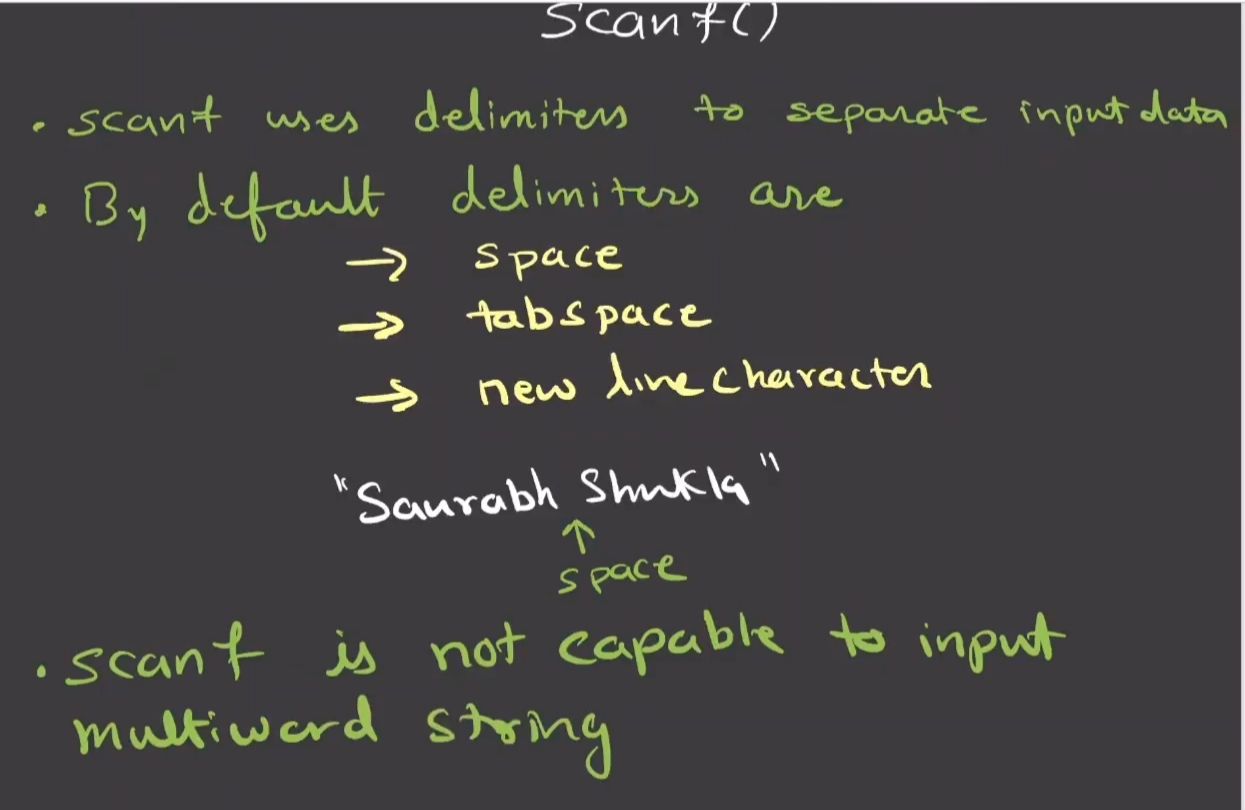 Scanf()
• scanf uses delimiters to separate input data
• By default delimiters are
→ space
→ tabspace
→ new line character
"Saurabh Shukla"
↑
space
• scanf is not capable to input
multiword string